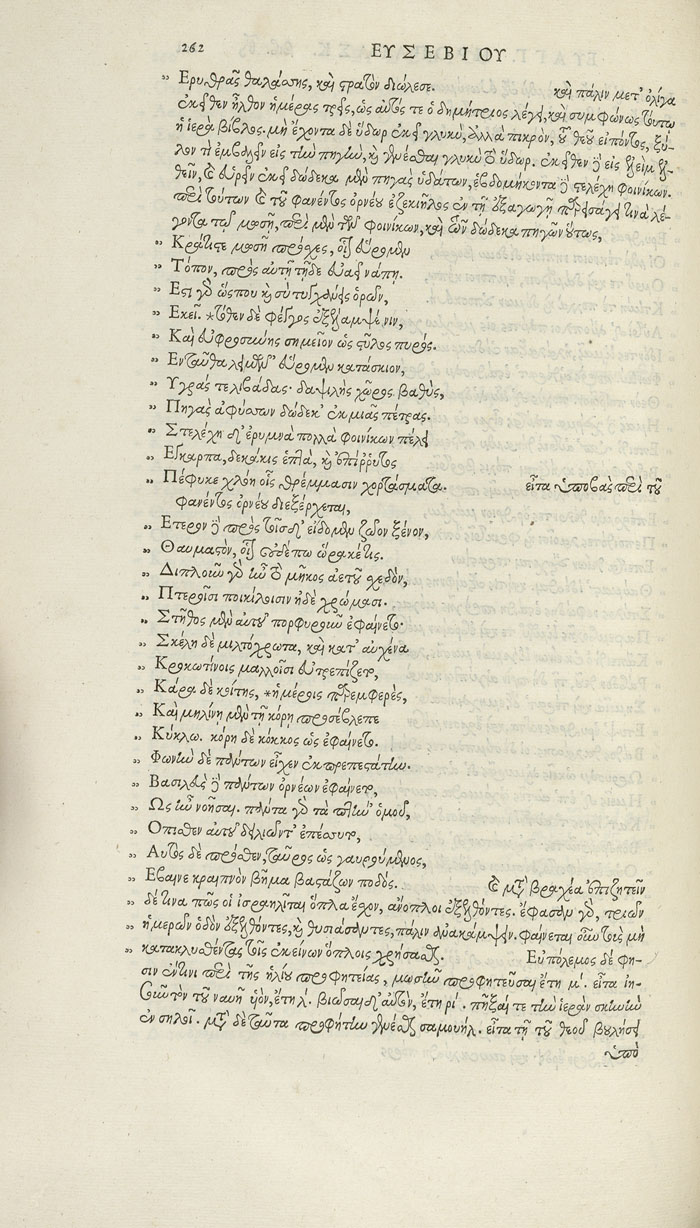 262 ΕΥΣΕΒΙΟΥ
" Ερυθρᾶς θαλάσσης, καὶ στρατὸν διώλεσε. καὶ πάλιν μετ' ὀλίγα
ἐκεῖθεν ἦλθον ἡμέρας τρεῖς, ὡς αὐτός τε ὁ δημήτριος λέγει, καὶ συμφώνως τούτῳ
ἡ ἱερὰ βίβλος. μὴ ἔχοντα δὲ ὕδωρ ἐκεῖ γλυκύ, ἀλλὰ πικρὸν, τοῦ θεοῦ εἰπόντος, ξύ-
λον τὶ ἐμβαλεῖν εἰς τὴν πηγὴν, καὶ γενέσθαι γλυκὺ τὸ ὕδωρ. ἐκεῖθεν δὲ εἰς ἐλεὶμ ἐλ-
θεῖν, καὶ εὑρεῖν ἐκεῖ δώδεκα μὲν πηγὰς ὑδάτων, ἑβδομήκοντα δὲ στελέχη φοινίκων.
περὶ τούτων καὶ τοῦ φανέντος ὀρνέου ἐζεκιῆλος ἐν τῇ ἐξαγωγῇ παρεισάγει τινὰ λέ-
γοντα τῷ μωσῇ, περὶ μὲν τῶν φοινίκων, καὶ τῶν δώδεκα πηγῶν οὕτως,
" Κράτιστε μωσῆ πρόσχες, οἷον εὕρομεν
" Τόπον, πρὸς αὐτῇ τῇδε εὐαεῖ νάπῃ.
" Εστι γὰρ ὥσπου καὶ σὺ τυγχάνεις ὁρῶν,
" Εκεῖ. *τόθεν δὲ φέγγος ἐξέλαμψέ νιν,
" Καὶ εὐφροσύνης σημεῖον ὡς στύλος πυρός.
" Ενταῦθα λειμῶν' εὕρομεν κατάσκιον,
" Υγράς τε λιβάδας· δαψιλὴς χῶρος βαθὺς,
" Πηγὰς ἀφύσσων δώδεκ' ἐκ μιᾶς πέτρας.
" Στελέχη δ' ἐρυμνὰ πολλὰ φοινίκων πέλει
" Εὔκαρπα, δεκάκις ἑπτὰ, καὶ ἐπίρρυτος
" Πέφυκε χλόη οἷς θρέμμασιν χορτάσματα. εἶτα ὑποβὰς περὶ τοῦ
φανέντος ὀρνέου διεξέρχεται,
" Ετερον δὲ πρὸς τοῖσδ' εἴδομεν ζῶον ξένον,
" Θαυμαστὸν, οἷον οὐδέπω ὥρακέ τις.
" Διπλοῦν γὰρ ἦν τὸ μῆκος ἀετοῦ σχεδὸν,
" Πτεροῖσι ποικίλοισιν ἠδὲ χρώμασι.
" Στῆθος μὲν αὐτοῦ πορφυροῦν ἐφαίνετο·
" Σκέλη δὲ μιλτόχρωτα, καὶ κατ' αὐχένα
" Κροκωτίνοις μαλλοῖσι εὐτρεπίζετο,
" Κάρα δὲ κοίτης, *ἡμέροις παρεμφερὲς,
" Καὶ μηλίνη μὲν τῇ κόρῃ προσέβλεπε
" Κύκλῳ. κόρη δὲ κόκκος ὡς ἐφαίνετο.
" Φωνὴν δὲ πάντων εἶχεν ἐκπρεπεστάτην.
" Βασιλεὺς δὲ πάντων ὀρνέων ἐφαίνετο,
" Ως ἦν νοῆσαι. πάντα γὰρ τὰ πτῆν' ὁμοῦ,
" Οπισθεν αὐτοῦ δειλιῶντ' ἐπέσσυτο,
" Αὐτὸς δὲ πρόσθεν, ταῦρος ὡς γαυρούμενος,
" Εβαινε κραιπνὸν βῆμα βαστάζων ποδός. καὶ μετὰ βραχέα ἐπιζητεῖν
" δέ τινα πῶς οἱ ἰσραηλῖται ὅπλα ἔσχον, ἄνοπλοι ἐξελθόντες. ἔφασαν γὰρ, τριῶν
" ἡμερῶν ὁδὸν ἐξελθόντες, καὶ θυσιάσαντες, πάλιν ἀνακάμψειν. φαίνεται οὖν τοὺς μὴ
" κατακλυσθέντας τοῖς ἐκείνων ὅπλοις χρήσασθαι. Εὐπόλεμος δέ φη-
σιν ἔν τινι περὶ τῆς ἡλίου προφητείας, μωσῆν προφητεῦσαι ἔτη μ΄. εἶτα ἰη-
σοῦν τὸν τοῦ ναυῆ υἱὸν, ἔτη λ΄. βιῶσαι δ' αὐτὸν, ἔτη ρί. πῆξαί τε τὴν ἱερὰν σκηνὴν
ἐν σηλοῖ. μετὰ δὲ ταῦτα προφήτην γενέσθαι σαμουήλ. εἶτα τῇ τοῦ θεοῦ βουλήσει
ὑπὸ